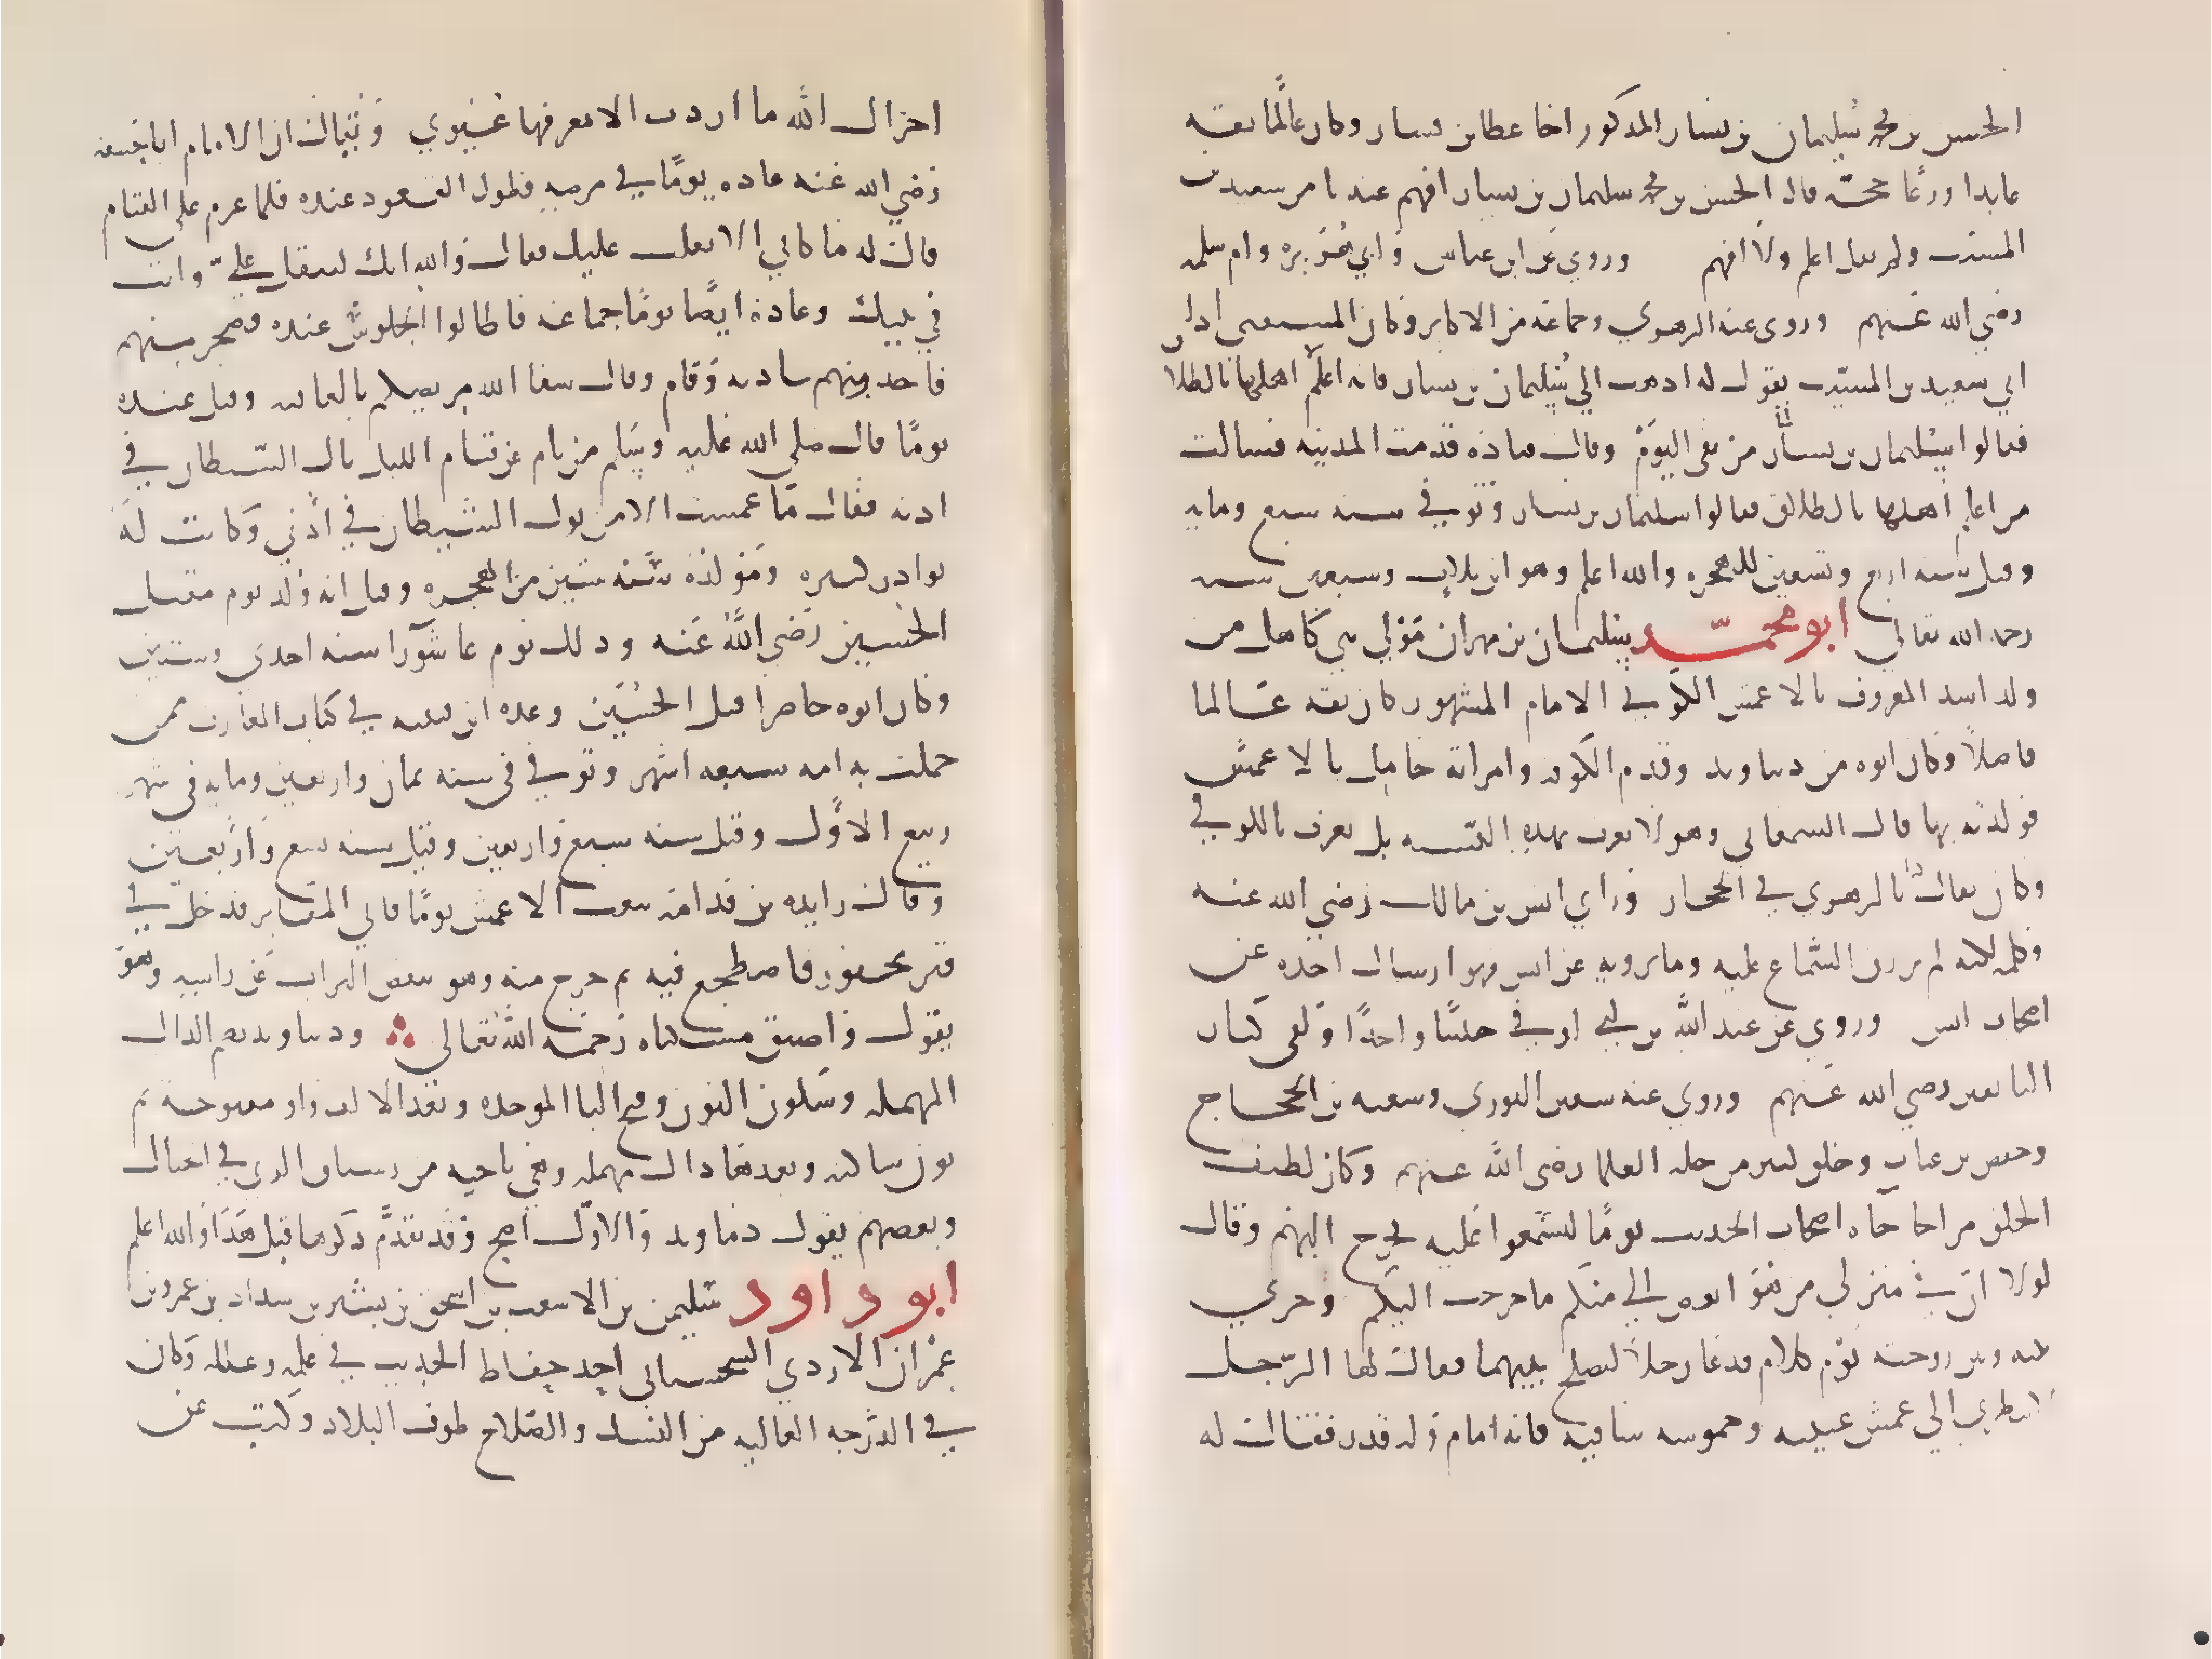 الحسن بن محمد سليمان بن يسار المذكور اخا عطا بن يسار وكان عالما ثقة
عابدا ورعا حجة قال الحسن بن محمد سليمان بن يسار افهم عندنا من سعيد بن
المسيب ولم يقل اعلم ولا افهم وروي عن ابن عباس وابي هريرة وام سلمه
رضي الله عنهم وروى عنه الزهري وجماعة من الاكابر وكان المستفتي اذا اتى
الى سعيد بن المسيب يقول له اذهب الى سليمان بن يسار فانه اعلم اهلها بالطلاق
فقالوا سليمان بن يسار من بقي اليوم وقال قتاده قدمت المدينه فسالت
من اعلم اهلها بالطلاق فقالوا سليمان بن يسار وتوفي سنه سبع ومايه
وقيل سنه اربع وتسعين للهجره والله اعلم وهو ابن ثلاث وسبعين سنه
رحمه الله تعالى ابو محمد سليمان بن مهران مولى بني كاهل من
ولد اسد المعروف بالاعمش الكوفي الامام المشهور كان ثقه عالما
فاضلا وكان ابوه من دنباوند وقدم الكوفه وامراته حامل بالاعمش
فولدته بها قال السمعاني وهو لا يعرف بهذه النسبه بل يعرف بالكوفي
وكان يقارن بالزهري في الحجاز وراي انس بن مالك رضي الله عنه
وكلمه لكنه لم يرزق السماع عليه وما يرويه عن انس فهو ارسال اخذه عن
اصحاب انس وروي عن عبد الله بن ابي اوفى حديثا واحدا ولقي كبار
التابعين رضي الله عنهم وروي عنه سفين الثوري وشعبه بن الحجاج
وحفص بن غياث وخلق كثير من جلة العلما رضي الله عنهم وكان لطيف
الخلق مزاحا جاه اصحاب الحديث يوما ليسمعوا عليه فخرج اليهم وقال
لولا ان في منزلي من هو ابغض الي منكم ما خرجت اليكم وجري
بينه وبين زوجته يوم كلام فدعا رجلا ليصلح بينهما فقال لها الرجل
لا تنظري الى عمش عينيه وحموشه ساقيه فانه امام وله قدر فقال له
اخزاك الله ما اردت الا تعرفها عيوبي وقيل ان الامام ابا حنيفه
رضي الله عنه عاده يوما في مرضه فطول القعود عنده فلما عزم على القيام
قال له ما كاني الا ثقلت عليك فقال والله انك لتثقل علي وانت
في بيتك وعاده ايضا يوما جماعه فاطالوا الجلوس عنده فضجر منهم
فاخذ وسادته وقام وقال شفا الله مريضكم بالعافيه وقيل عنده
يوما قال صلى الله عليه وسلم من نام عن قيام الليل بال الشيطان في
اذنه فقال ما عمشت الا من بول الشيطان في اذني وكانت له
نوادر كثيره ومولده سنه ستين من الهجره وقيل انه ولد يوم مقتل
الحسين رضي الله عنه وذلك يوم عاشورا سنه احدى وستين
وكان ابوه حاضرا قتل الحسين وعده ابن قتيبه في كتاب المعارف ممن
حملت به امه سبعه اشهر وتوفي في سنه ثمان واربعين ومايه في شهر
ربيع الاول وقيل سنه سبع واربعين وقيل سنه تسع واربعين
وقال زايده بن قدامه تبعت الاعمش يوما فاتى المقابر فدخل في
قبر محفور فاضطجع فيه ثم خرج منه وهو ينفض التراب عن راسه وهو
يقول واضيق مسكناه رحمه الله تعالى ودنباوند بضم الدال
المهمله وسكون النون وفتح البا الموحده وبعد الالف واو مفتوحة ثم
نون ساكنه وبعدها دال مهمله وهي ناحيه من رستاق الري في الجبال
وبعضهم يقول دماوند والاول اصح وقد تقدم ذكرها قبل هذا والله اعلم
ابو داود سليمن بن الاشعث بن اسحق بن بشير بن شداد بن عمرو بن
عمران الازدي السجستاني احد حفاظ الحديث في علمه وعلله وكان
في الدرجه العاليه من النسك والصلاح طوف البلاد وكتب عن